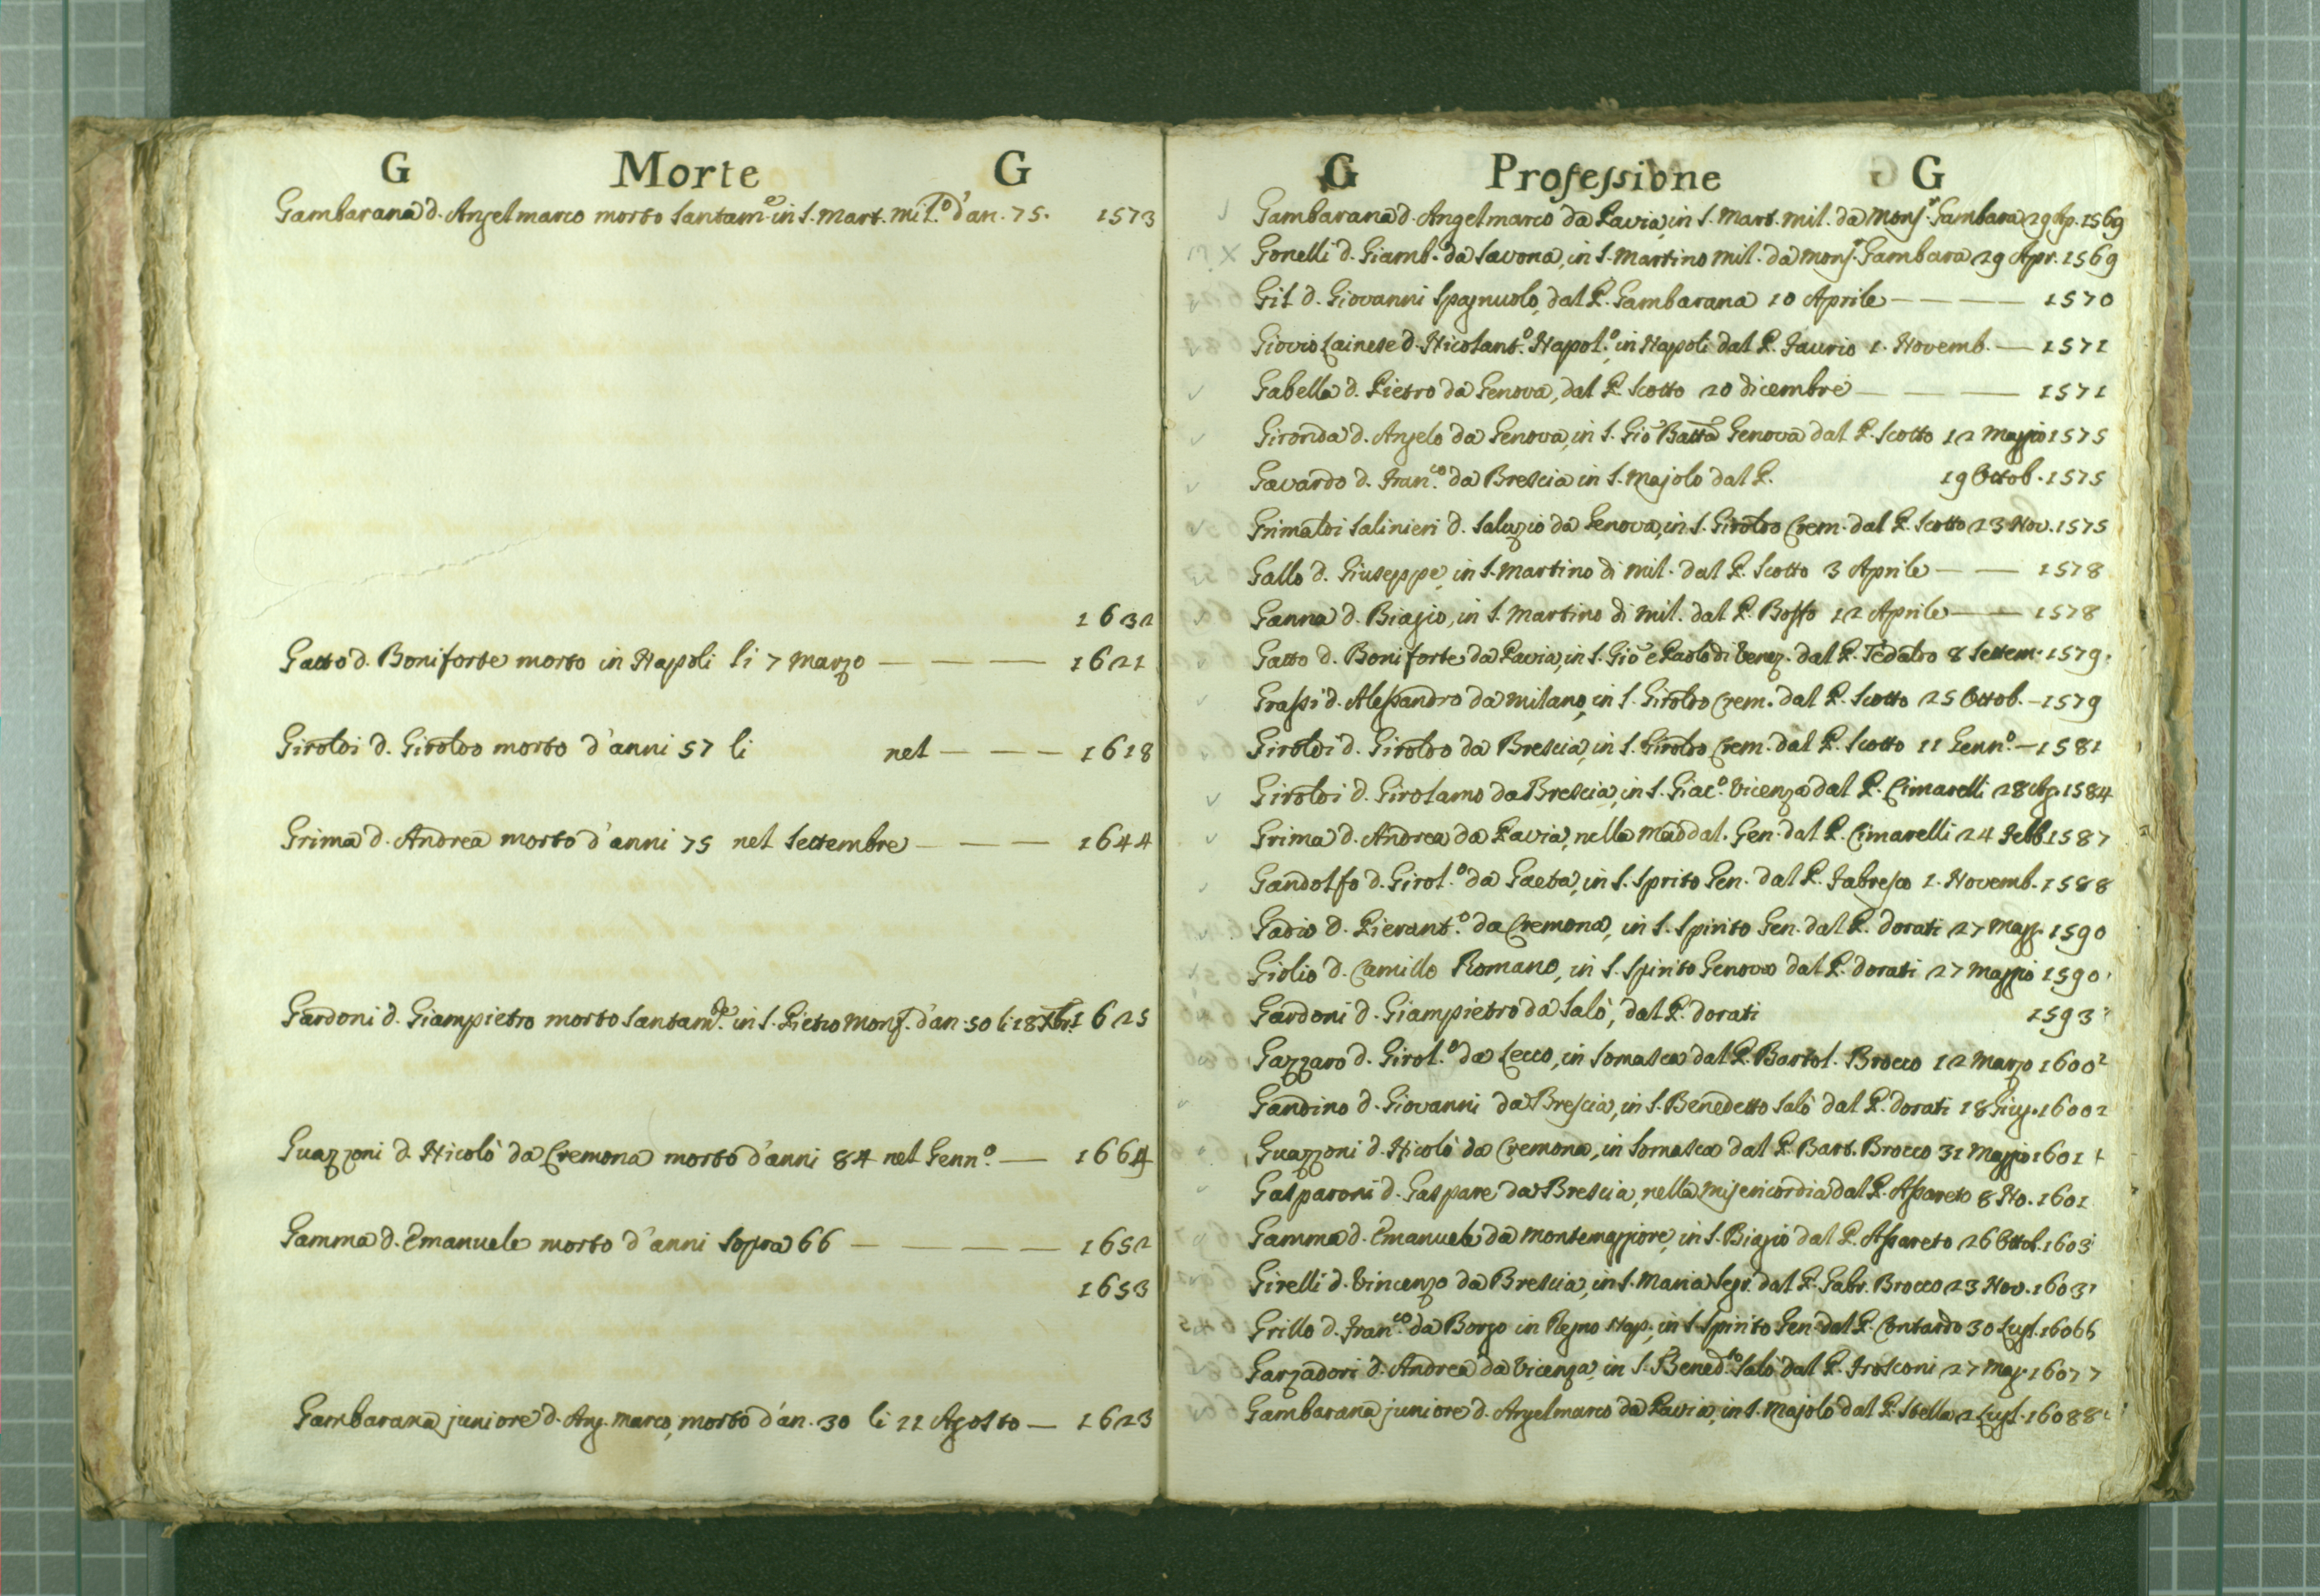 G Morte G
Gambarana d. Angelmarco morto santam.e in S. Mart. Mil.o d'an. 75. 1573
1632
Gatto d. Boniforte morto in Napoli li 7 Marzo — — — 1621
Giroldi d. Giroldo morto d'anni 57 li nel — — — 1618
Grima d. Andrea morto d'anni 75 nel Settembre — — — 1644
Gardoni d. Giampietro morto santam.e in S. Pietro Monf. d'an. 50 li 18 Xbr. 1625
Guazzoni d. Nicolò da Cremona morto d'anni 84 nel Genn.o — 1664
Gamma d. Emanuele morto d'anni sopra 66 — — — — 1652
1653
Gambarana juniore d. Ang. Marco, morto d'an. 30 li 22 Agosto — 1623
G Professione G
Gambarana d. Angelmarco da Pavia, in S. Mart. Mil. da Mons.r Gambara 29 Ap. 1569
Gonelli d. Giamb. da Savona, in S. Martino Mil. da Mons.r Gambara 29 Apr. 1569
Gil d. Giovanni Spagnuolo, dal P. Gambarana 10 Aprile — — — — 1570
Giovio Lainese d. Nicolant.o Napol.o, in Napoli dal P. Faurio 1. Novemb. — 1571
Gabella d. Pietro da Genova, dal P. Scotto 20 dicembre — — — 1571
Gironda d. Angelo da Genova, in S. Gio Batta Genova dal P. Scotto 12 Maggio 1575
Gavardo d. Fran.co da Brescia in S. Majolo dal P. 19 Ottob. 1575
Grimaldi Salinieri d. Saluzio da Genova, in S. Giroldo Crem. dal P. Scotto 23 Nov. 1575
Gallo d. Giuseppe, in S. Martino di Mil. dal P. Scotto 3 Aprile — — 1578
Ganna d. Biagio, in S. Martino di Mil. dal P. Bosso 12 Aprile — — 1578
Gatto d. Boniforte da Pavia, in S. Gio e Paolo di Venez. dal P. Tedaldo 8 Settem. 1579.
Grassi d. Alessandro da Milano, in S. Giroldo Crem. dal P. Scotto 25 Ottob. — 1579
Giroldi d. Giroldo da Brescia, in S. Giroldo Crem. dal P. Scotto 11 Genn.o — 1581
Giroldi d. Girolamo da Brescia, in S. Giac.o Vicenza dal P. Cimarelli 28 Ag. 1584
Grima d. Andrea da Pavia, nella Maddal. Gen. dal P. Cimarelli 24 Febb. 1587
Gandolfo d. Girol.o da Gaeta, in S. Sprito Gen. dal P. Fabresco 1. Novemb. 1588
Gadio d. Pierant.o da Cremona, in S. Spirito Gen. dal P. Dorati 27 Magg. 1590
Giolio d. Camillo Romano, in S. Spirito Genova dal P. Dorati 27 Maggio 1590
Gardoni d. Giampietro da Salò, dal P. Dorati 1593
Gazzaro d. Girol.o da Lecco, in Somasca dal P. Bartol. Brocco 12 Marzo 1600
Gandino d. Giovanni da Brescia, in S. Benedetto Salò dal P. Dorati 18 Giug. 1600
Guazzoni d. Nicolò da Cremona, in Somasca dal P. Bart. Brocco 31 Maggio 1601
Gasparoni d. Gaspare da Brescia, nella Misericordia dal P. Assareto 8 No. 1601
Gamma d. Emanuele da Montemaggiore, in S. Biagio dal P. Assareto 26 Ottob. 1603
Girelli d. Vincenzo da Brescia, in S. Maria Segr. dal P. Gabr. Brocco 23 Nov. 1603
Grillo d. Fran.co da Borgo in Regno Nap., in S. Spirito Gen. dal P. Contardo 30 Lugl. 1606
Garzadori d. Andrea da Vicenza, in S. Bened.to Salò dal P. Frosconi 27 Mag. 1607
Gambarana juniore d. Angelmarco da Pavia, in S. Majolo dal P. Stella 2 Lugl. 1608